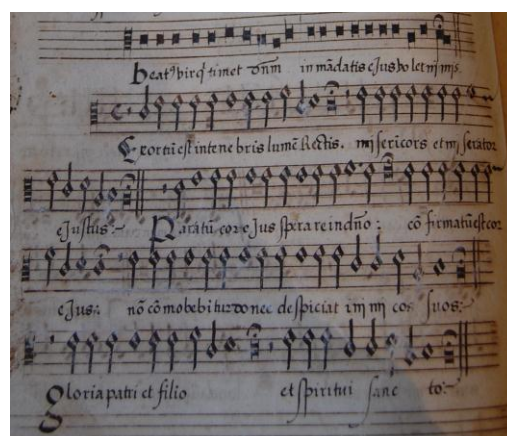 Beatꝰ vir q̄ timet dnm̄ in mādatis ejus volet nimis.
Exortū est in tenebris lumē Rectis. misericors et miserator
ejustus:~ Paratū cor ejus sperare in dnō: cōfirmatū est cor
ejus: nō cōmobebitur donec despiciat inimicos suos:~
Gloria patri et filio et spiritui sancto:~